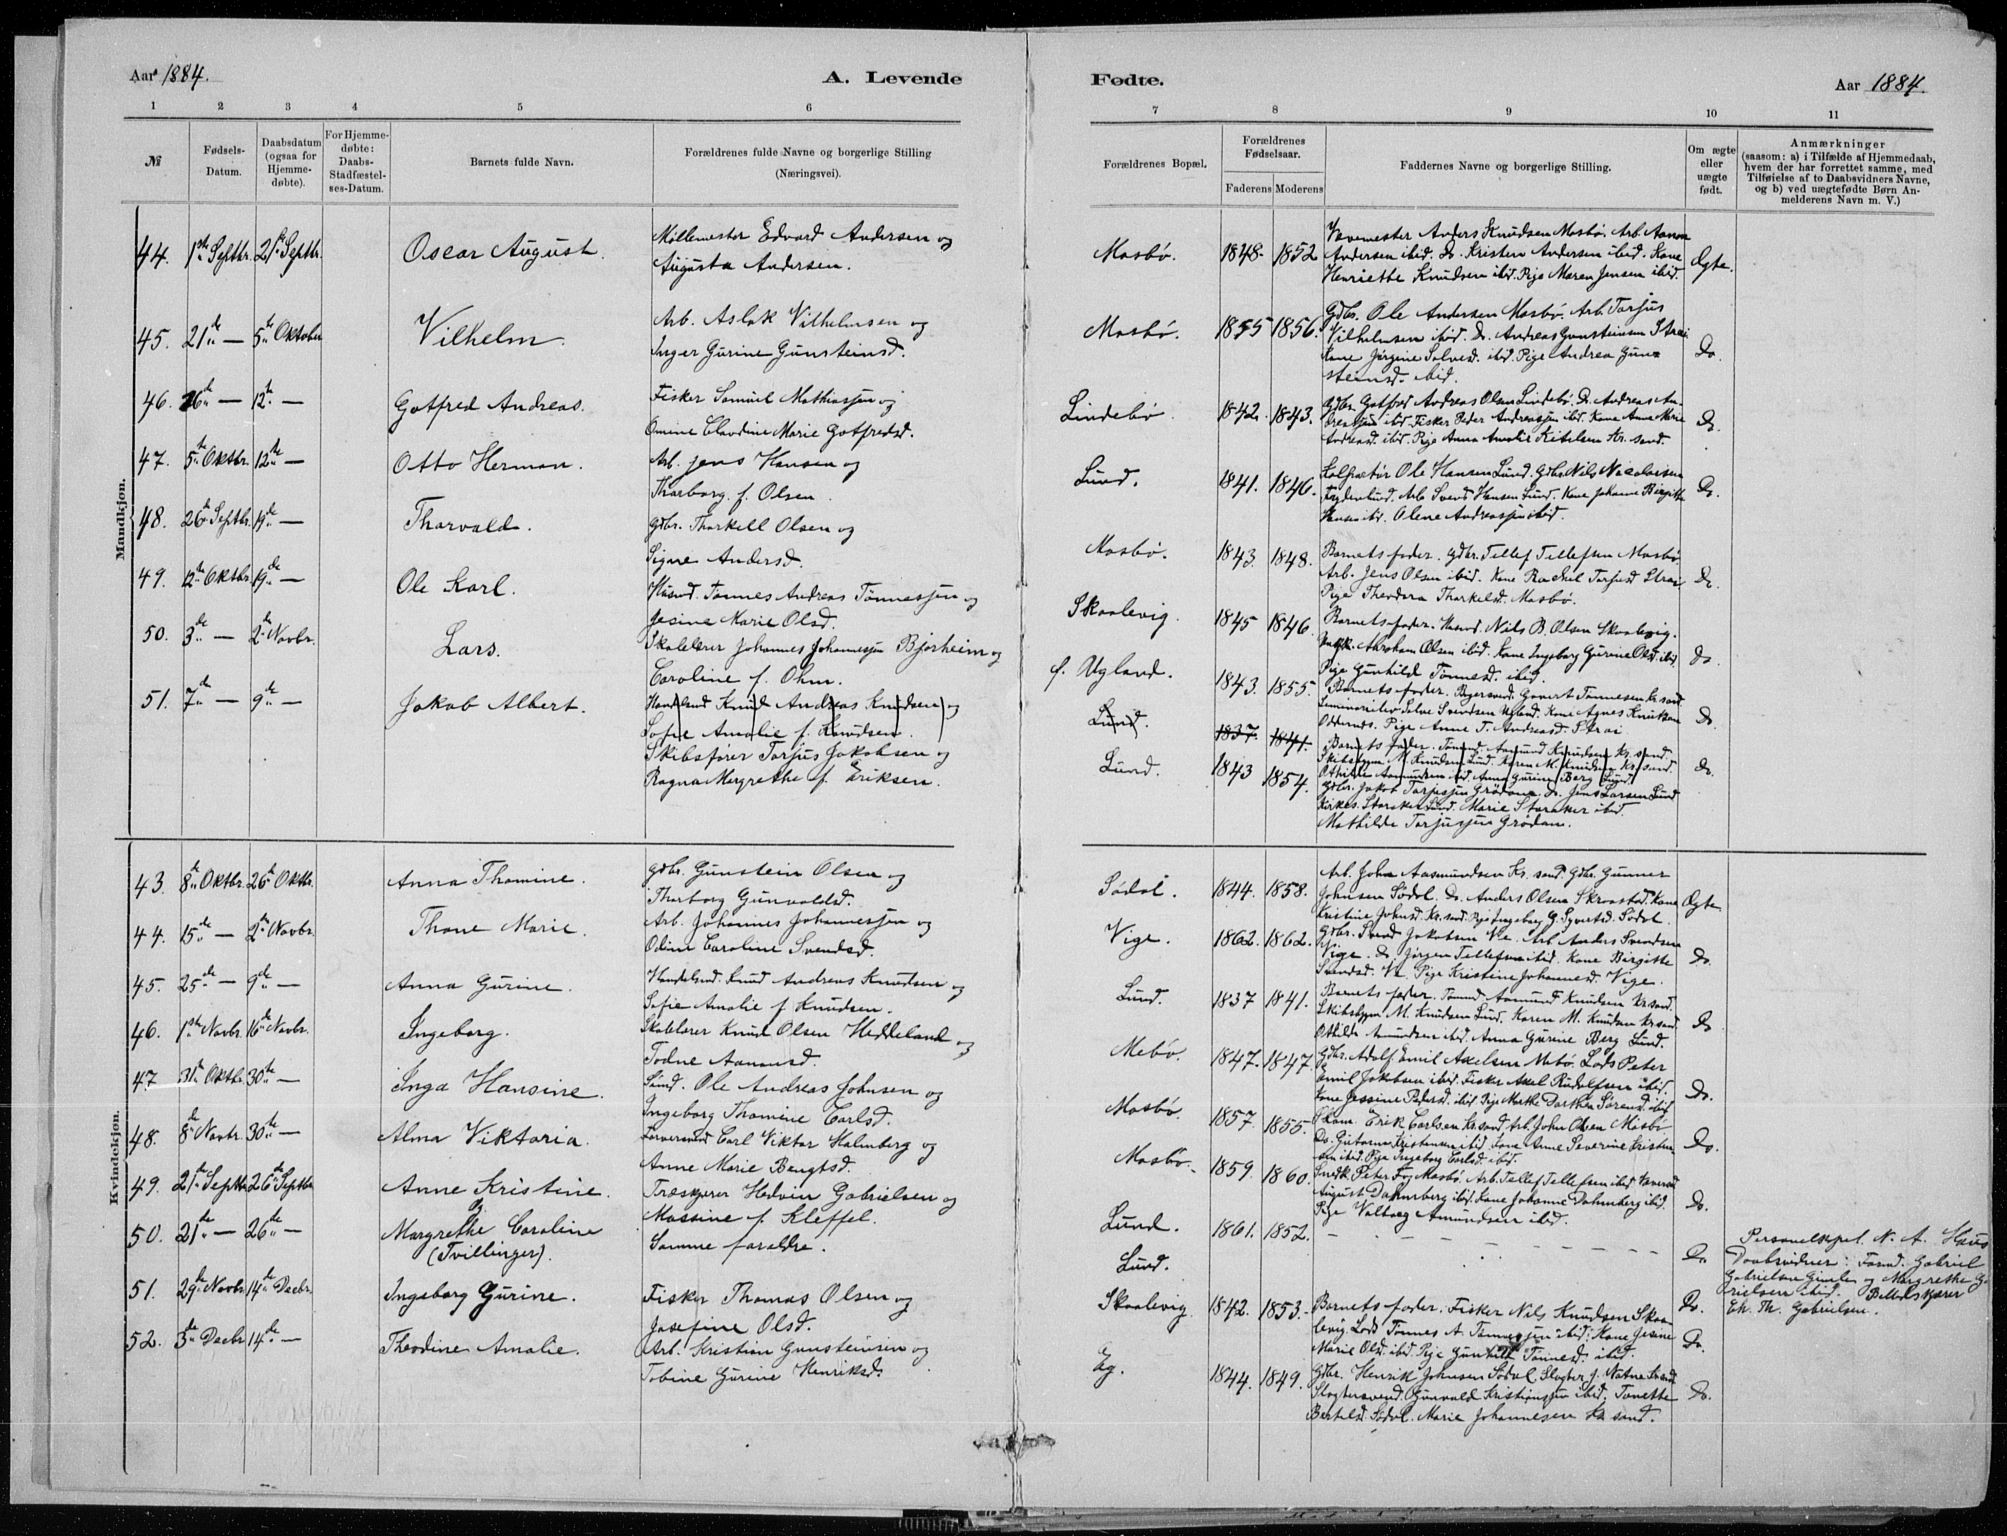 Aar 1884.
A. Levende
1 2 3 4 5 6
№
Fødsels-
Datum.
Daabsdatum
(ogsaa for
Hjemme-
døbte).
For Hjemme-
døbte:
Daabs-
Stadfæstel-
ses-Datum.
Barnets fulde Navn.
Forældrenes fulde Navne og borgerlige Stilling
(Næringsvei).
Mandkjøn.
44. 1ste Septbr. 21de Septbr. Oscar August. Møllemester Edvard Andersen og
Augusta Andersen.
45. 21de — 5te Oktober Vilhelm. Arb. Aslak Vilhelmsen og
Inger Gurine Gunsteinsd.
46. 26de — 12te — Gotfred Andreas. Fisker Samuel Mathiassen og
Omine Claudine Marie Gotfredsd.
47. 5te Oktbr. 12te — Otto Herman. Arb. Jens Hansen og
Tharborg f. Olsen.
48. 26de Septbr. 19de — Thorvald. Gdbr. Thorkell Olsen og
Signe Andersd.
49. 12te Oktbr. 19de — Ole Karl. Husmd. Tønnes Andreas Tønnessen og
Jesine Marie Olsd.
50. 3de — 2de Novbr. Lars. Skolelærer Johannes Johannessen Bjørheim og
Caroline f. Ohm.
51. 7de — 9de — Jakob Albert. Handelsmd Knud Andreas Knudsen og
Sofie Amalie f. Knudsen.
Skibsfører Torjus Jakobsen og
Ragna Margrethe f. Eriksen.
Kvindekjøn.
43. 8de Oktbr. 26de Oktbr. Anna Thomine. Gdbr. Gunstein Olsen og
Tharborg Gunvaldsd.
44. 15de — 2de Novbr. Thone Marie. Arb. Johannes Johannessen og
Odine Caroline Svendsd.
45. 25de — 9de — Anna Gurine. Handelsmd. Knud Andreas Knudsen og
Sofie Amalie f. Knudsen.
46. 1ste Novbr. 16de Novbr. Ingeborg. Skolelærer Knud Olsen Heddeland og
Todne Aanonsd.
47 31te Oktbr. 30te — Inga Hansine. Sømd. Ole Andreas Johnsen og
Ingeborg Thomine Carlsd.
48. 8de Novbr. 30te — Alma Viktoria. Farversvend Carl Viktor Halmberg og
Anne Marie Bengtsd.
49. 21de Septbr. 26de Septbr. Anne Kristine. Træskjærer Hedvin Gabrielsen og
og
Massine f. Kleffel.
50. 21de — 26de — Margrethe Caroline Samme forældre.
(Tvillinger).
51. 29de Novbr. 14de Decbr. Ingeborg Gurine. Fisker Thomas Olsen og
Josefine Olsd.
52. 3de Decbr 14de — Theodine Amalie. Arb. Kristian Gunsteinsen og
Tobine Gurine Henriksd.
Fødte.
Aar 1884.
7 8 9 10 11
Forældrenes Bopæl.
Forældrenes
Fødselsaar.
Faderens Moderens
Faddernes Navne og borgerlige Stilling.
Om ægte
eller
uægte
født.
Anmærkninger
(saasom: a) i Tilfælde af Hjemmedaab,
hvem der har forrettet samme, med
Tilføielse af to Daabsvidners Navne,
og b) ved uægtefødte Børn An-
melderens Navn m. V.)
Mosbø. 1848. 1852 Vævemester Anders Knudsen Mosbø. Arb. Aanon
Andersen ibid. Do. Kristen Andersen ibid. Kone
Henriette Knudsen ibid. Pige Maren Jensen ibid. Ægte.
Mosbø. 1855 1856. Gdbr. Ole Andersen Mosbø. Arb. Torjus
Vilhelmsen ibid. Do. Andreas Gunsteinsen Strai
Kone Jørgine Salvesd. ibid. Pige Andrea Gun-
steinsd. ibid. Do.
Lindebø. 1842. 1843. Gdbr. Gotfred Andreas Olsen Lindebø. Do Andreas An-
dreassen ibid. Fisker Peder Andreassen ibid. Kone Anne Marie
Andreasd. ibid. Pige Anna Amalie Kitelsen Kr. sand. Do.
Lund. 1841. 1846. Ole Hansen Lund. Gdbr. Nils Nicolaisen
Arb. Svend Hansen Lund. Kone Johanne Birgitte
Hansen ibid. Olene Andreassen ibid. Do.
Mosbø. 1843. 1848. Barnets fader. Gdbr. Tellef Tellefsen Mosbø
Arb. Jens Olsen ibid. Kone Rachel Torjusd Strai
Pige Theodora Thorkelsd. Mosbø. Do.
Skaalevig. 1845 1846. Barnets fader. Husmd. Nils B. Olsen Skaalevig.
Abraham Olsen ibid. Kone Ingeborg Gurine Olsd. ibid
Pige Gunhild Tønnesd. ibid. Do.
f. Ugland. 1843. 1855. Barnets fader. Govert Tønnesen Kr. sand.
Seminarielev Salve Svendsen Ugland. Kone Agnes Knutson
Oddernes. Pige Anne T. Andreasd. Strai Do
Lund. 1837. 1841. Barnets fader. Tømmd. Aamund Knudsen Kr. sand.
Skibstømm. M. Knudsen Lund. Karen M. Knudsen Kr. sand.
Othilde Aamundsen ibid. Anna Gurine Berg Lund.
Lund. 1843 1854. Gdbr. Jakob Torjussen Grødum. Do. Jens Larsen Lund
Storaker Lund. Marie Storaker ibid.
Mathilde Torjussen Grødum. Do
Sødal. 1844. 1858. Arb. John Aasmundsen Kr. sand. Gdbr. Gunner
Johnsen Sødal. Do. Anders Olsen Skraastad. Kone
Kristine Johnsd. Kr. sand. Pige Ingeborg G. Syvertsd. Sødal. Ægte
Vige. 1862. 1862. Gdbr. Svend Jakobsen Ve. Arb. Anders Svendsen
Vige. Do. Jørgen Tellefsen ibid. Kone Birgitte
Svendsd. Ve. Pige Kristine Johannesd. Vige. Do.
Lund. 1837 1841. Barnets fader. Tømmd. Aamund Knudsen Kr. sand.
Skibstømm. M. Knudsen Lund. Karen M. Knudsen Kr. sand.
Othilde Amundsen ibid. Anna Gurine Berg Lund. Do
Mebø. 1847. 1847. Gdbr. Adolf Emil Axelsen Mebø. Lods Peter
Emil Jakobsen ibid. Fisker Axel Rudolfsen ibid.
Kone Jessine Pedersd. ibid. Pige Marthe Dorthea Sørensd. ibid Do.
Mosbø. 1857. 1855. Erik Carlsen Kr. sand. Arb. John Olsen Mosbø
Do. Guttorm Kristensen ibid. Kone Anne Severine Kristen-
sen ibid. Pige Ingeborg Carlsd. ibid. Do.
Mosbø. 1859. 1860. Snedk. Peter Foy Mosbø. Arb. Tellef Tellefsen ibid.
August Dahmberg ibid. Kone Johanne Dahmberg ibid.
Pige Valborg Amundsen ibid. Do.
Lund. 1861. 1852. — — — — — — Do.
Lund.
Personelkapel. N. A. Haus
Daabsvidner: Formd. Gabriel
Gabrielsen Gimle og Margrethe Ga
brielsen ibid. Billedskjærer
Ek. Th. Gabrielsen.
Skaalevig 1842. 1853. Barnets fader. Fisker Nils Knudsen Skaa-
levig. Lods Tønnes A. Tønnessen ibid. Kone Jesine
Marie Olsd. ibid. Pige Gunhild Tønnesd. ibid. Do.
Eg. 1844. 1849. Gdbr. Henrik Johnsen Sødal. Slagter J. Natne Strai
Slagtersvend Gunvald Kristiansen ibid. Tonette
Bertelsd. Sødal. Marie Johannesen Kr. sand. Do.